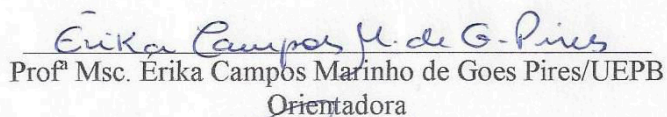 Érika Campos M. de G. Pires
Profª Msc. Érika Campos Marinho de Goes Pires/UEPB
Orientadora